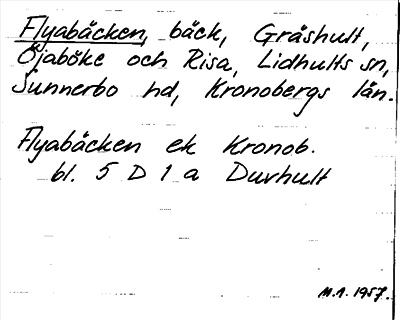 Flyabäcken, bäck, Gråshult,
Öjaböke och Risa, Lidhults sn,
Sunnerbo hd, Kronobergs län.
Flyabäcken ek Kronob.
bl. 5 D 1 a Duvhult
M.1. 1957.